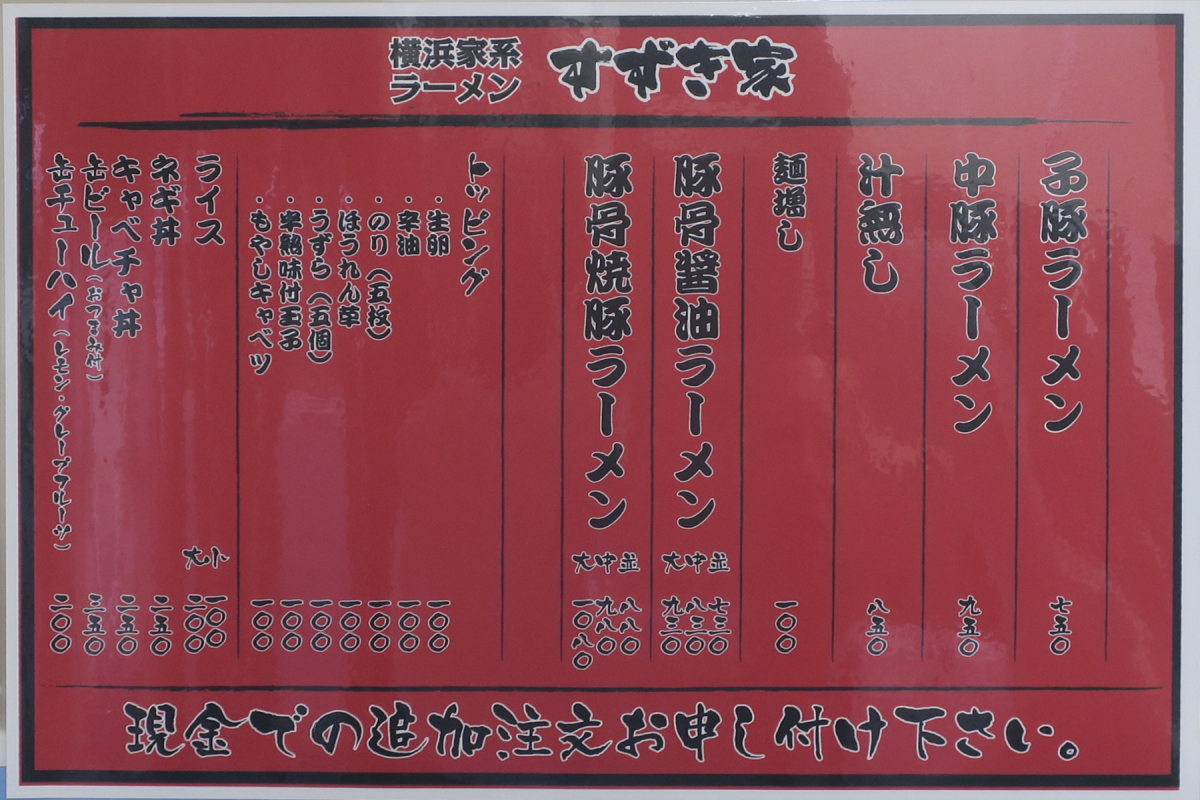 横浜家系
ラーメン
すずき家
子豚ラーメン 七五〇
中豚ラーメン 九五〇
汁無し 八五〇
麺増し 一〇〇
豚骨醤油ラーメン 並 七三〇
中 八三〇
大 九三〇
豚骨焼豚ラーメン 並 八八〇
中 九八〇
大 一〇八〇
トッピング
・生卵 一〇〇
・辛油 一〇〇
・のり(五枚) 一〇〇
・ほうれん草 一〇〇
・うずら(五個) 一〇〇
・半熟味付玉子 一〇〇
・もやしキャベツ 一〇〇
ライス 小 一〇〇
大 二〇〇
ネギ丼 二五〇
キャベチャ丼 二五〇
缶ビール(おつまみ付) 三五〇
缶チューハイ(レモン・グレープフルーツ) 二〇〇
現金での追加注文お申し付け下さい。